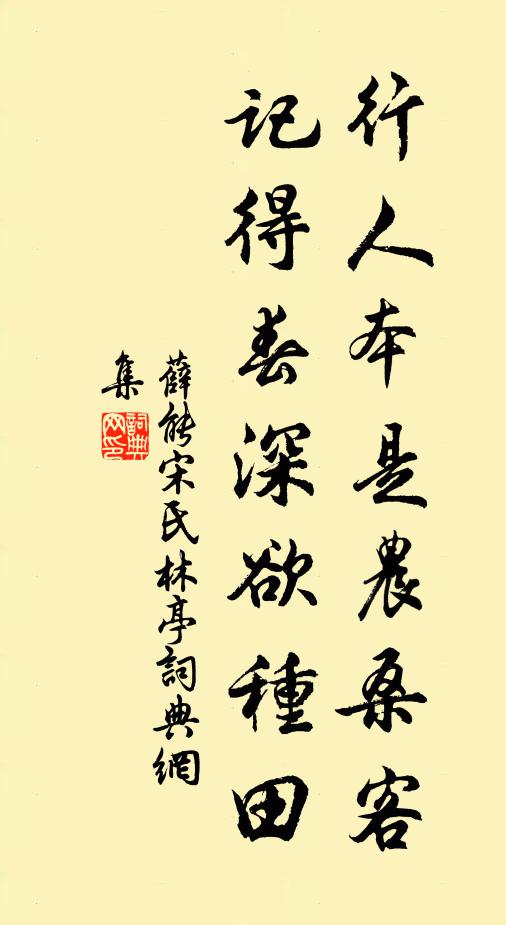 行人本是農桑客
記得春深欲種田
薛能宋氏林亭詞典網
集
詞典
网印